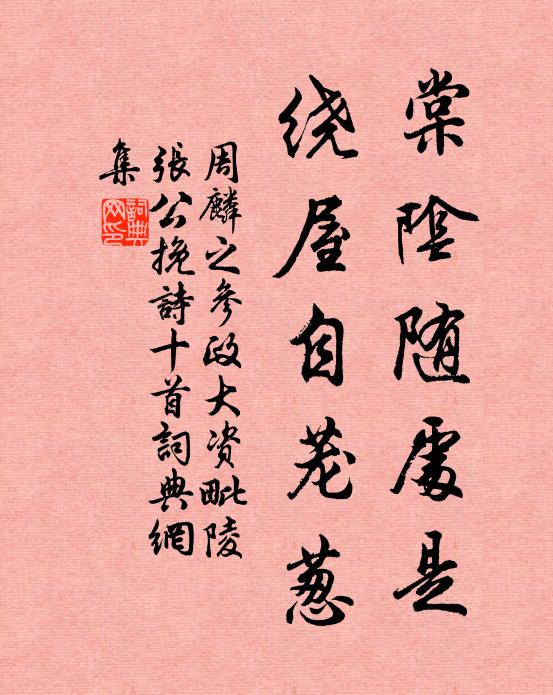 棠陰随處是
绕屋自茏葱
周麟之參政大资毗陵
張公挽詩十首詞典網
集
詞典
网印